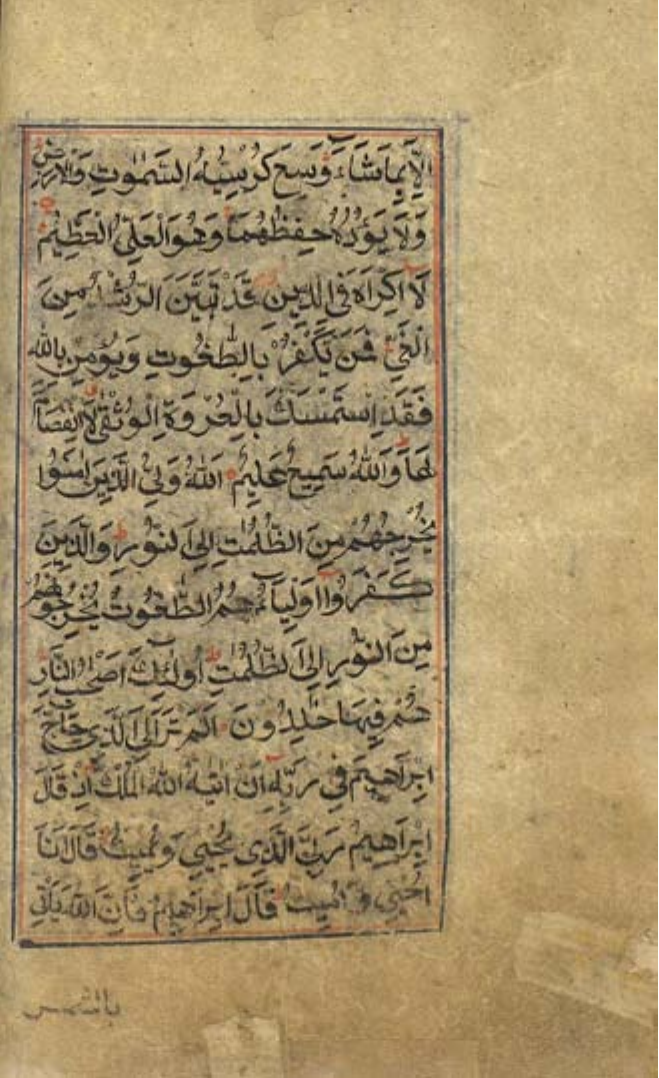 اِلَّا بِمَا شَآءَ وَسِعَ كُرْسِيُّهُ السَّمٰوٰتِ وَالْاَرْضَ
وَلَا يَؤُدُهُ حِفْظُهُمَا وَهُوَ الْعَلِيُّ الْعَظِيْمُ
لَا اِكْرَاهَ فِي الدِّيْنِ قَدْ تَبَيَّنَ الرُّشْدُ مِنَ
الْغَيِّ فَمَنْ يَكْفُرْ بِالطَّغُوتِ وَيُؤْمِنْ بِاللهِ
فَقَدِ اسْتَمْسَكَ بِالْعُرْوَةِ الْوُثْقٰى لَا انْفِصَامَ
لَهَا وَاللهُ سَمِيعٌ عَلِيْمٌ اَللهُ وَلِيُّ الَّذِيْنَ اٰمَنُوا
يُخْرِجُهُمْ مِنَ الظُّلُمٰتِ اِلَى النُّوْرِ وَالَّذِيْنَ
كَفَرُوْا اَوْلِيَآءُهُمُ الطَّغُوتُ يُخْرِجُوْنَهُمْ
مِنَ النُّوْرِ اِلَى الظُّلُمٰتِ اُولٰئِكَ اَصْحٰبُ النَّارِ
هُمْ فِيْهَا خٰلِدُوْنَ اَلَمْ تَرَ اِلَى الَّذِي حَآجَّ
اِبْرَاهِيْمَ فِي رَبِّهِ اَنْ اٰتٰيهُ اللهُ الْمُلْكَ اِذْ قَالَ
اِبْرَاهِيْمُ رَبِّيَ الَّذِي يُحْيِي وَيُمِيْتُ قَالَ اَنَا
اُحْيِي وَاُمِيْتُ قَالَ اِبْرَاهِيْمُ فَاِنَّ اللهَ يَأْتِي
بالشمس